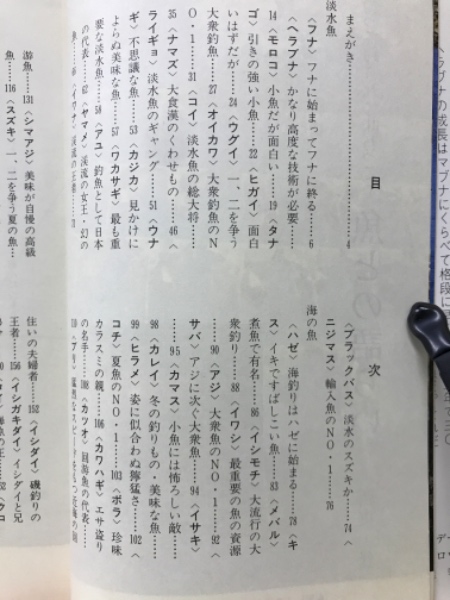 ヘラブナの成長はマブナにくらべて格段に
目　次
まえがき……………………………… 4
淡水魚
〈フナ〉フナに始まってフナに終る…… 6
〈ヘラブナ〉かなり高度な技術が必要……
14〈モロコ〉小魚だが面白い……19〈タナ
ゴ〉引きの強い小魚……22〈ヒガイ〉面白
いはずだが……24〈ウグイ〉一、二を争う
大衆釣魚……27〈オイカワ〉大衆釣魚のN
O・1……31〈コイ〉淡水魚の総大将……
35〈ナマズ〉大食漢のくわせもの……46〈
ライギョ〉淡水魚のギャング……51〈ウナ
ギ〉不思議な魚……53〈カジカ〉見かけに
よらぬ美味な魚……57〈ワカサギ〉最も重
要な淡水魚……58〈アユ〉釣魚として日本
の代表……62〈ヤマメ〉渓流の女王・幻の
魚……66〈イワナ〉渓流の王者……71
〈ブラックバス〉淡水のスズキか……74〈
ニジマス〉輸入魚のNO・1……76
海の魚
〈ハゼ〉海釣りはハゼに始まる……78〈キ
ス〉イキですばしこい魚……83〈メバル〉
煮魚で有名……86〈イシモチ〉大流行の大
衆釣り……88〈イワシ〉最重要の魚の資源
……90〈アジ〉大衆魚のNO・1……92〈
サバ〉アジに次ぐ大衆魚……94〈イサキ〉
……95〈カマス〉小魚には怖ろしい敵……
98〈カレイ〉冬の釣りもの・美味な魚……
99〈ヒラメ〉姿に似合わぬ獰猛さ……102〈
コチ〉夏魚のNO・1……102〈ボラ〉珍味
カラスミの親……106〈カワハギ〉エサ盗り
の名手……108〈カツオ〉回游魚の代表……
110〈ブリ〉猛烈なスピードをもつ近海の回
游魚……131〈シマアジ〉美味が自慢の高級
魚……116〈スズキ〉一、二を争う夏の魚…
住いの夫婦者……152〈イシダイ〉磯釣りの
王者……156〈イシガキダイ〉イシダイと兄